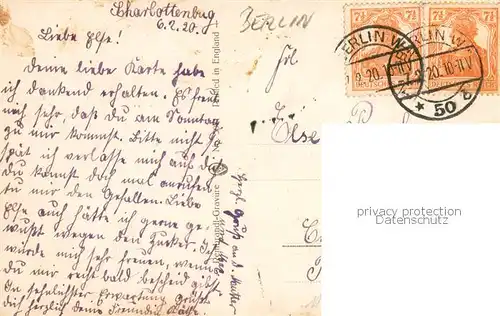 Charlottenbug
6.2.20.
BERLIN
Liebe Else!
Deine liebe Karte habe
ich dankend erhalten. Es freut
mich sehr, daß du am Sonntag
zu mir kommst. Bitte nicht
spät ich verlasse mich auf dich
du kannst doch mal anrufen
tu mir den Gefallen. Liebe
Else auch hätte ich gerne ge-
wußt wegen den Zucker. Ich
würde mich sehr freuen, wenn
du mir recht bald bescheid gibst
In sehnlichster Erwartung grüßt
dich herzlich deine Freundin Käthe
Herzl. Gruß an d. Mutter
Printed in England
Gravure
Frl.
Else
BERLIN W
50
BERLIN W
2.20.10-11V
7½
7½
privacy protection
Datenschutz